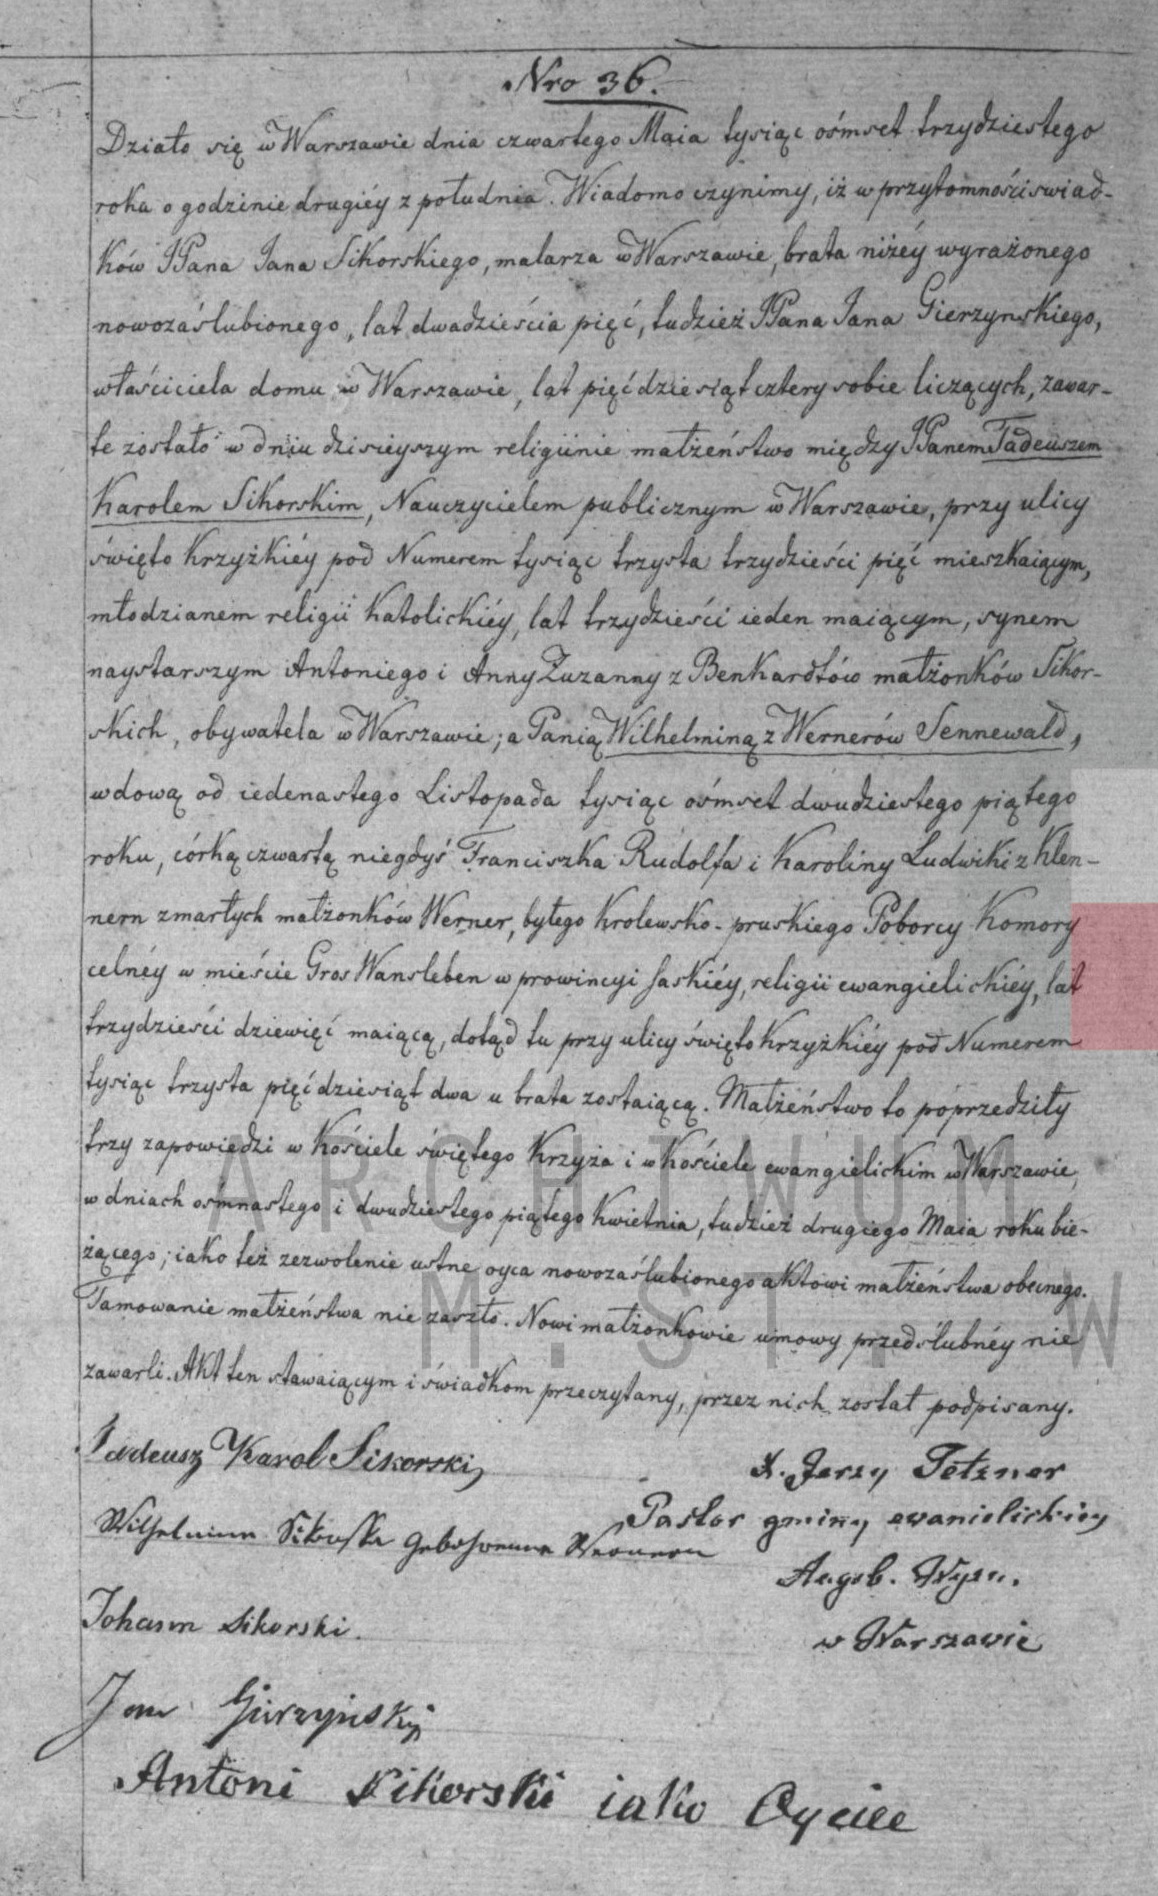 Nro 36.
Działo się w Warszawie dnia czwartego Maia tysiąc ośmset trzydziestego
roku o godzinie drugiéy z południa. Wiadomo czynimy, iż w przytomności swiad-
ków JPana Jana Sikorskiego, malarza w Warszawie, brata niżéy wyrażonego
nowozaślubionego, lat dwadzieścia pięć, tudzież JPana Jana Gierzynskiego,
właściciela domu w Warszawie, lat pięćdziesiąt cztery sobie liczących, zawar-
te zostało w dniu dzisieyszym religiinie małżeństwo między JPanem Tadeuszem
Karolem Sikorskim, Nauczycielem publicznym w Warszawie, przy ulicy
święto Krzyżkiéy pod Numerem tysiąc trzysta trzydzieści pięć mieszkaiącym,
młodzianem religii katolickiéy, lat trzydzieści ieden maiącym, synem
naystarszym Antoniego i Anny Zuzanny z Benkardtów małżonków Sikor-
skich, obywatela w Warszawie; a Panią Wilhelminą z Wernerów Sennewald,
wdową od iedenastego Listopada tysiąc ośmset dwudziestego piątego
roku, córką czwartą niegdyś Franciszka Rudolfa i Karoliny Ludwiki z Klen-
nern zmarłych małżonków Werner, byłego Krolewsko-pruskiego Poborcy Komory
celnéy w mieście Gros Wansleben w prowincyi saskiéy, religii ewangielickiéy, lat
trzydzieści dziewięć maiącą, dotąd tu przy ulicy święto Krzyżkiéy pod Numerem
tysiąc trzysta pięćdziesiąt dwa u brata zostaiącą. Małżeństwo to poprzedziły
trzy zapowiedzi w Kościele świętego Krzyża i w Kościele ewangielickim w Warszawie,
w dniach osmnastego i dwudziestego piątego Kwietnia, tudzież drugiego Maia roku bie-
żącego; iako też zezwolenie ustne oyca nowozaślubionego aktowi małżeństwa obecnego.
Tamowanie małżeństwa nie zaszło. Nowi małżonkowie umowy przedślubnéy nie
zawarli. Akt ten stawaiącym i świadkom przeczytany, przez nich został podpisany.
Tadeusz Karol Sikorski
X. Jerzy Tetzner
Pastor gminy ewanielickiey
Wilhelmine Sikorska gebohrene Werner
Augsb. Wyzn.
Johann Sikorski.
w Warszawie
Jan Girzyński
Antoni Sikorski iako Oyciec
ARCHIWUM
M. ST. W